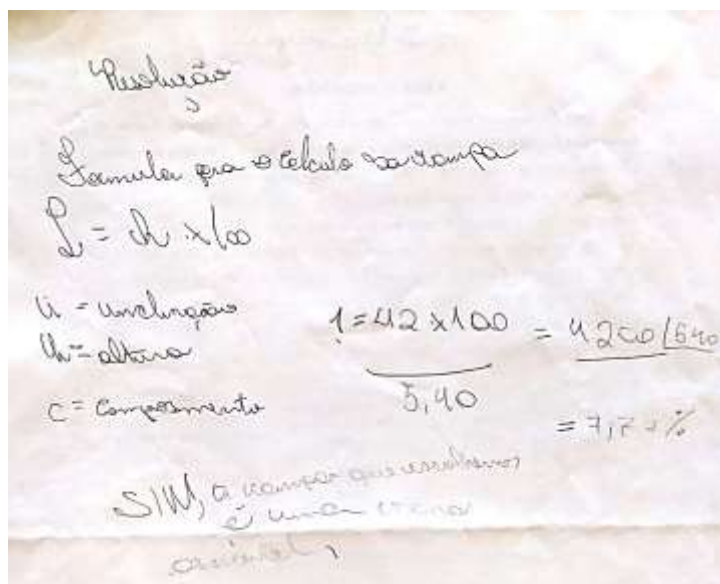 Resolução
Formula para o calculo da rampa
I = h x 100
i = inclinação
h = altura
c = Comprimento
i = 42 x 100 = 4200 540
5,40
= 7,7 %
SIM, a rampa que escolhemos
é uma